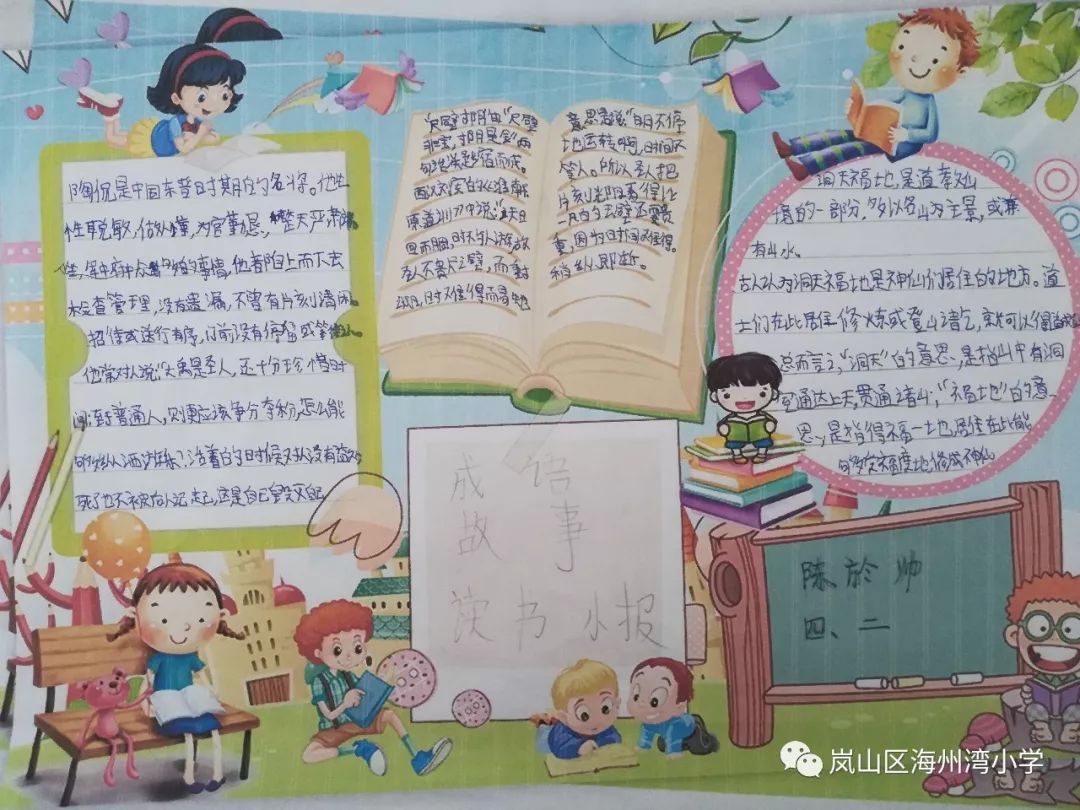 陶侃是中国东晋时期的名将。他生
性聪敏,做人谨,为官勤恳,整天严肃端
坐,军中府中众多的事情,他都自上而下去
检查管理,没有遗漏,不曾有片刻清闲。
招待或送行有序,门前没有停留或等待人。
他常对人说:"大禹是圣人,还十分珍惜时
间;至于普通人,则更应该争分夺秒,怎么能
够游乐?活着的时候对人没有益处,
死了也不被后人记起,这是自己毁灭自己
"尺璧寸阴由"尺璧
非宝,寸阴是竞"两
句
原道训中说:"夫日
回而月周,时不与人游,故
圣人不贵尺之璧,而重
寸之阴,时难得而易失也
意思是说"日月不停
地运转啊,时间不
等人。所以圣人把
片刻光阴看得比
一尺的玉璧还贵
重,因为时间难得。
稍纵即逝。
洞天福地,是道教仙
境的一部分,多以名山为主景,或兼
有山水。
古人认为洞天福地是神仙们居住的地方。道
士们在此居住修炼或登山请乞,就可以得道成仙
总而言之,"洞天"的意思,是指山中有洞
室通达上天,贯通诸山;"福地"的意
思,是指得福一土地,居住在此能
够受福度地修成神仙。
成语
故事
读书小报
陈於帅
四、二
岚山区海州湾小学